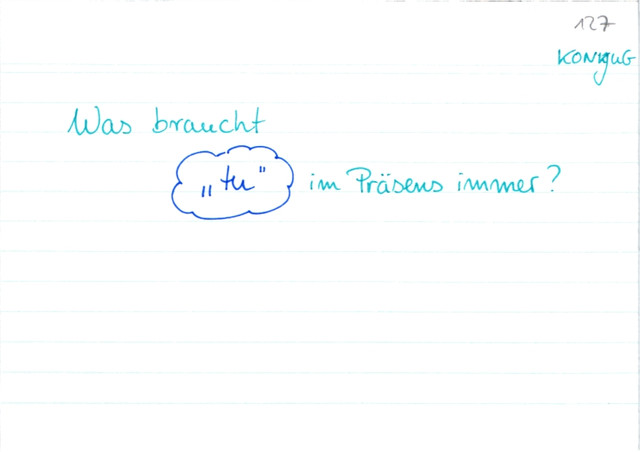 127
KONJUG
Was braucht
„tu" im Präsens immer?